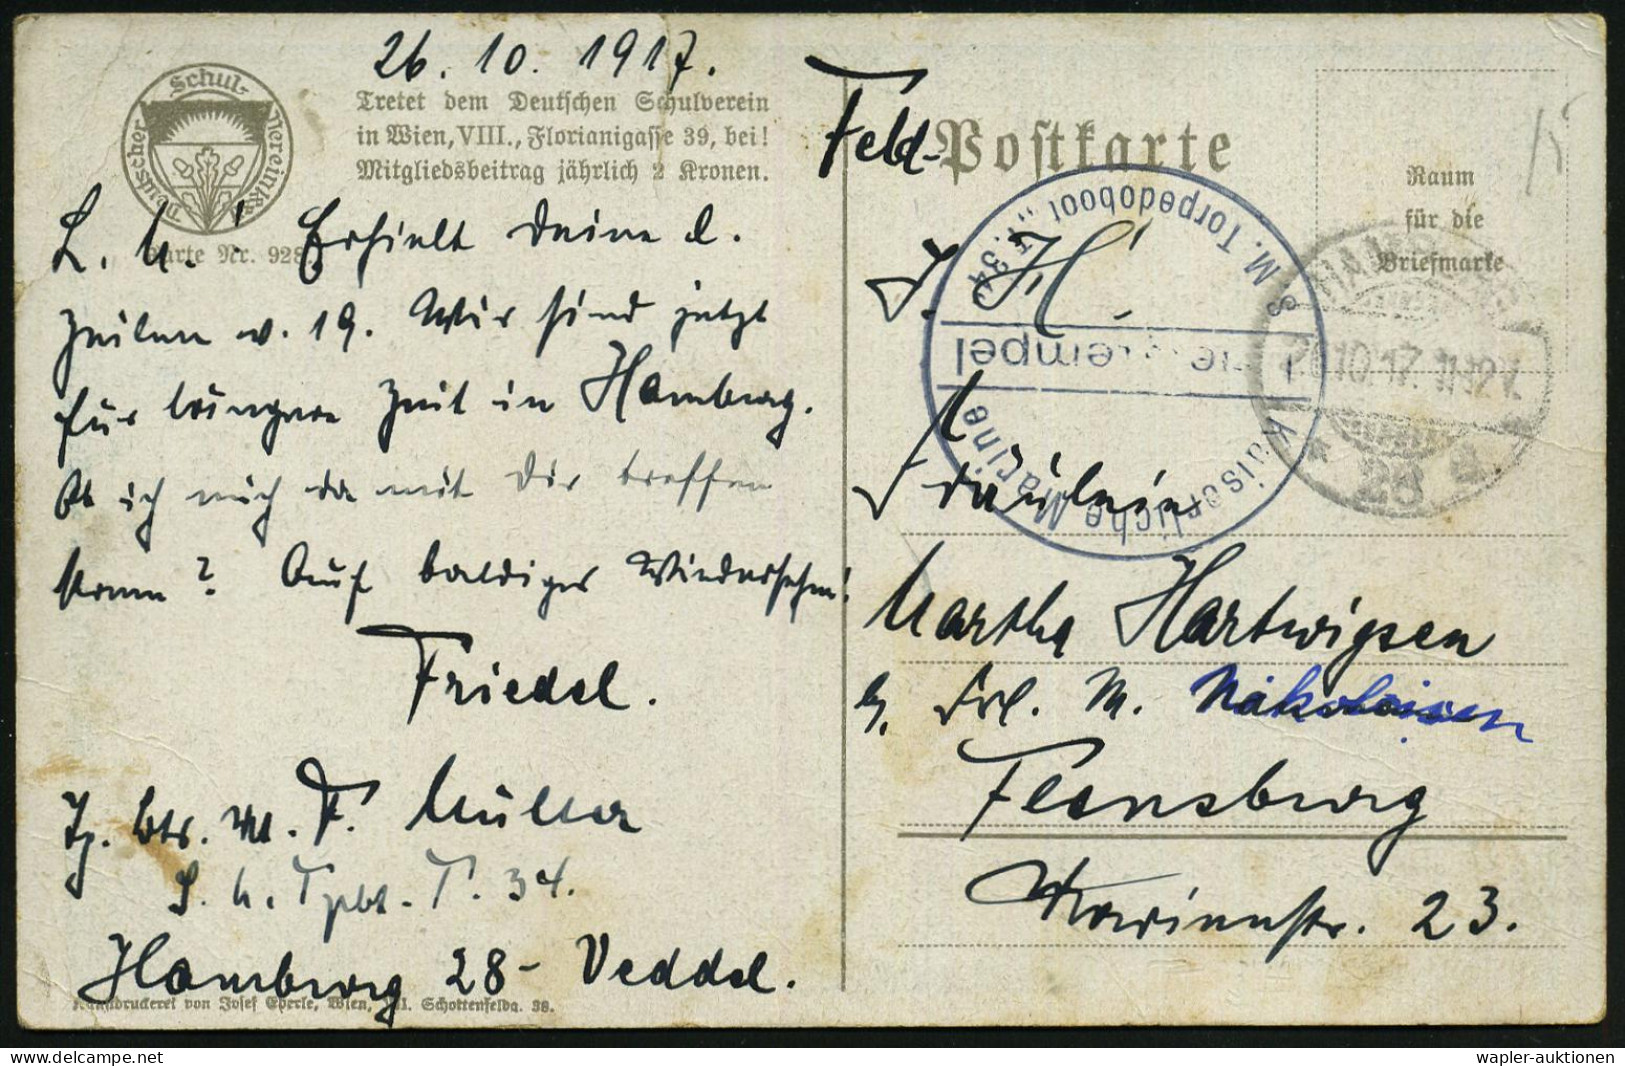 26. 10. 1917.
Deutscher Schul-Verein
Tretet dem Deutschen Schulverein
in Wien, VIII., Florianigasse 39, bei!
Mitgliedsbeitrag jährlich 2 Kronen.
Karte Nr. 928
L. M.! Erhielt Deine l.
Zeilen v. 19. Wir sind jetzt
für längere Zeit in Hamburg.
Ob ich mich da mit Dir treffen
kann? Auf baldiges Wiedersehen!
Friedel.
F. Müller
S. M. Tpbt. T. 34.
Hamburg 28 - Veddel.
Kunstdruckerei von Josef Eberle, Wien, VII. Schottenfeldg. 38.
Feld-Postkarte
S. M. Torpedoboot „T. 34"
Kaiserliche Marine
Raum
für die
Briefmarke
15
26.10.17. 11-12V.
* 28 a.
Fräulein
Martha Hartwigsen
b. Frl. M. Nikolaisen
Flensburg
Marienstr. 23.
wapler-auktionen